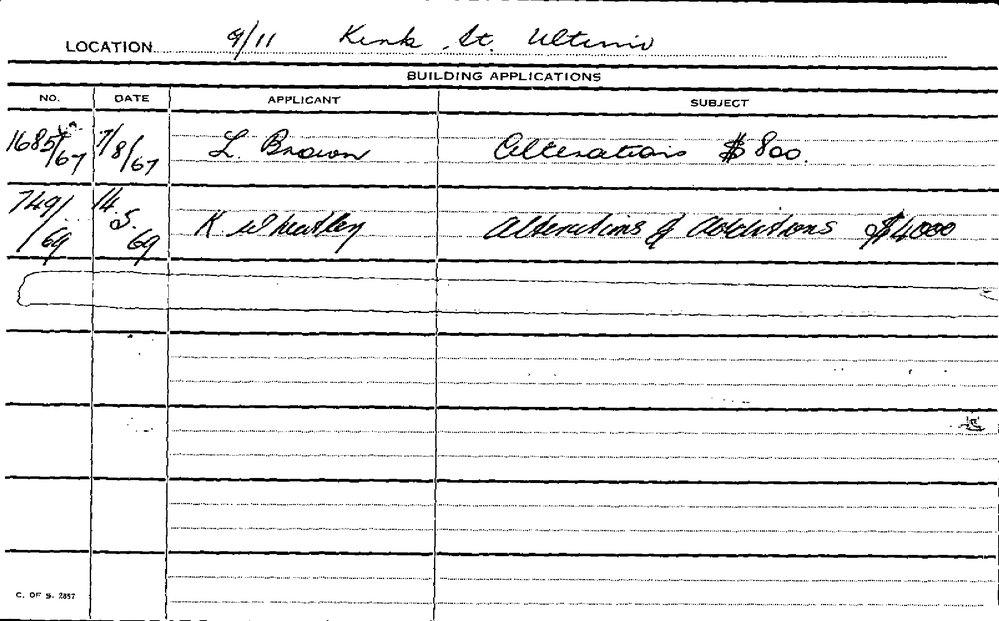 LOCATION 9/11 Kirk St. Ultimo
BUILDING APPLICATIONS
NO. DATE APPLICANT SUBJECT
1685/67 7/8/67 L. Brown Alterations $800.
749/69 14.5.69 K Wheatley Alterations & Additions $4000
C. OF S. 2857